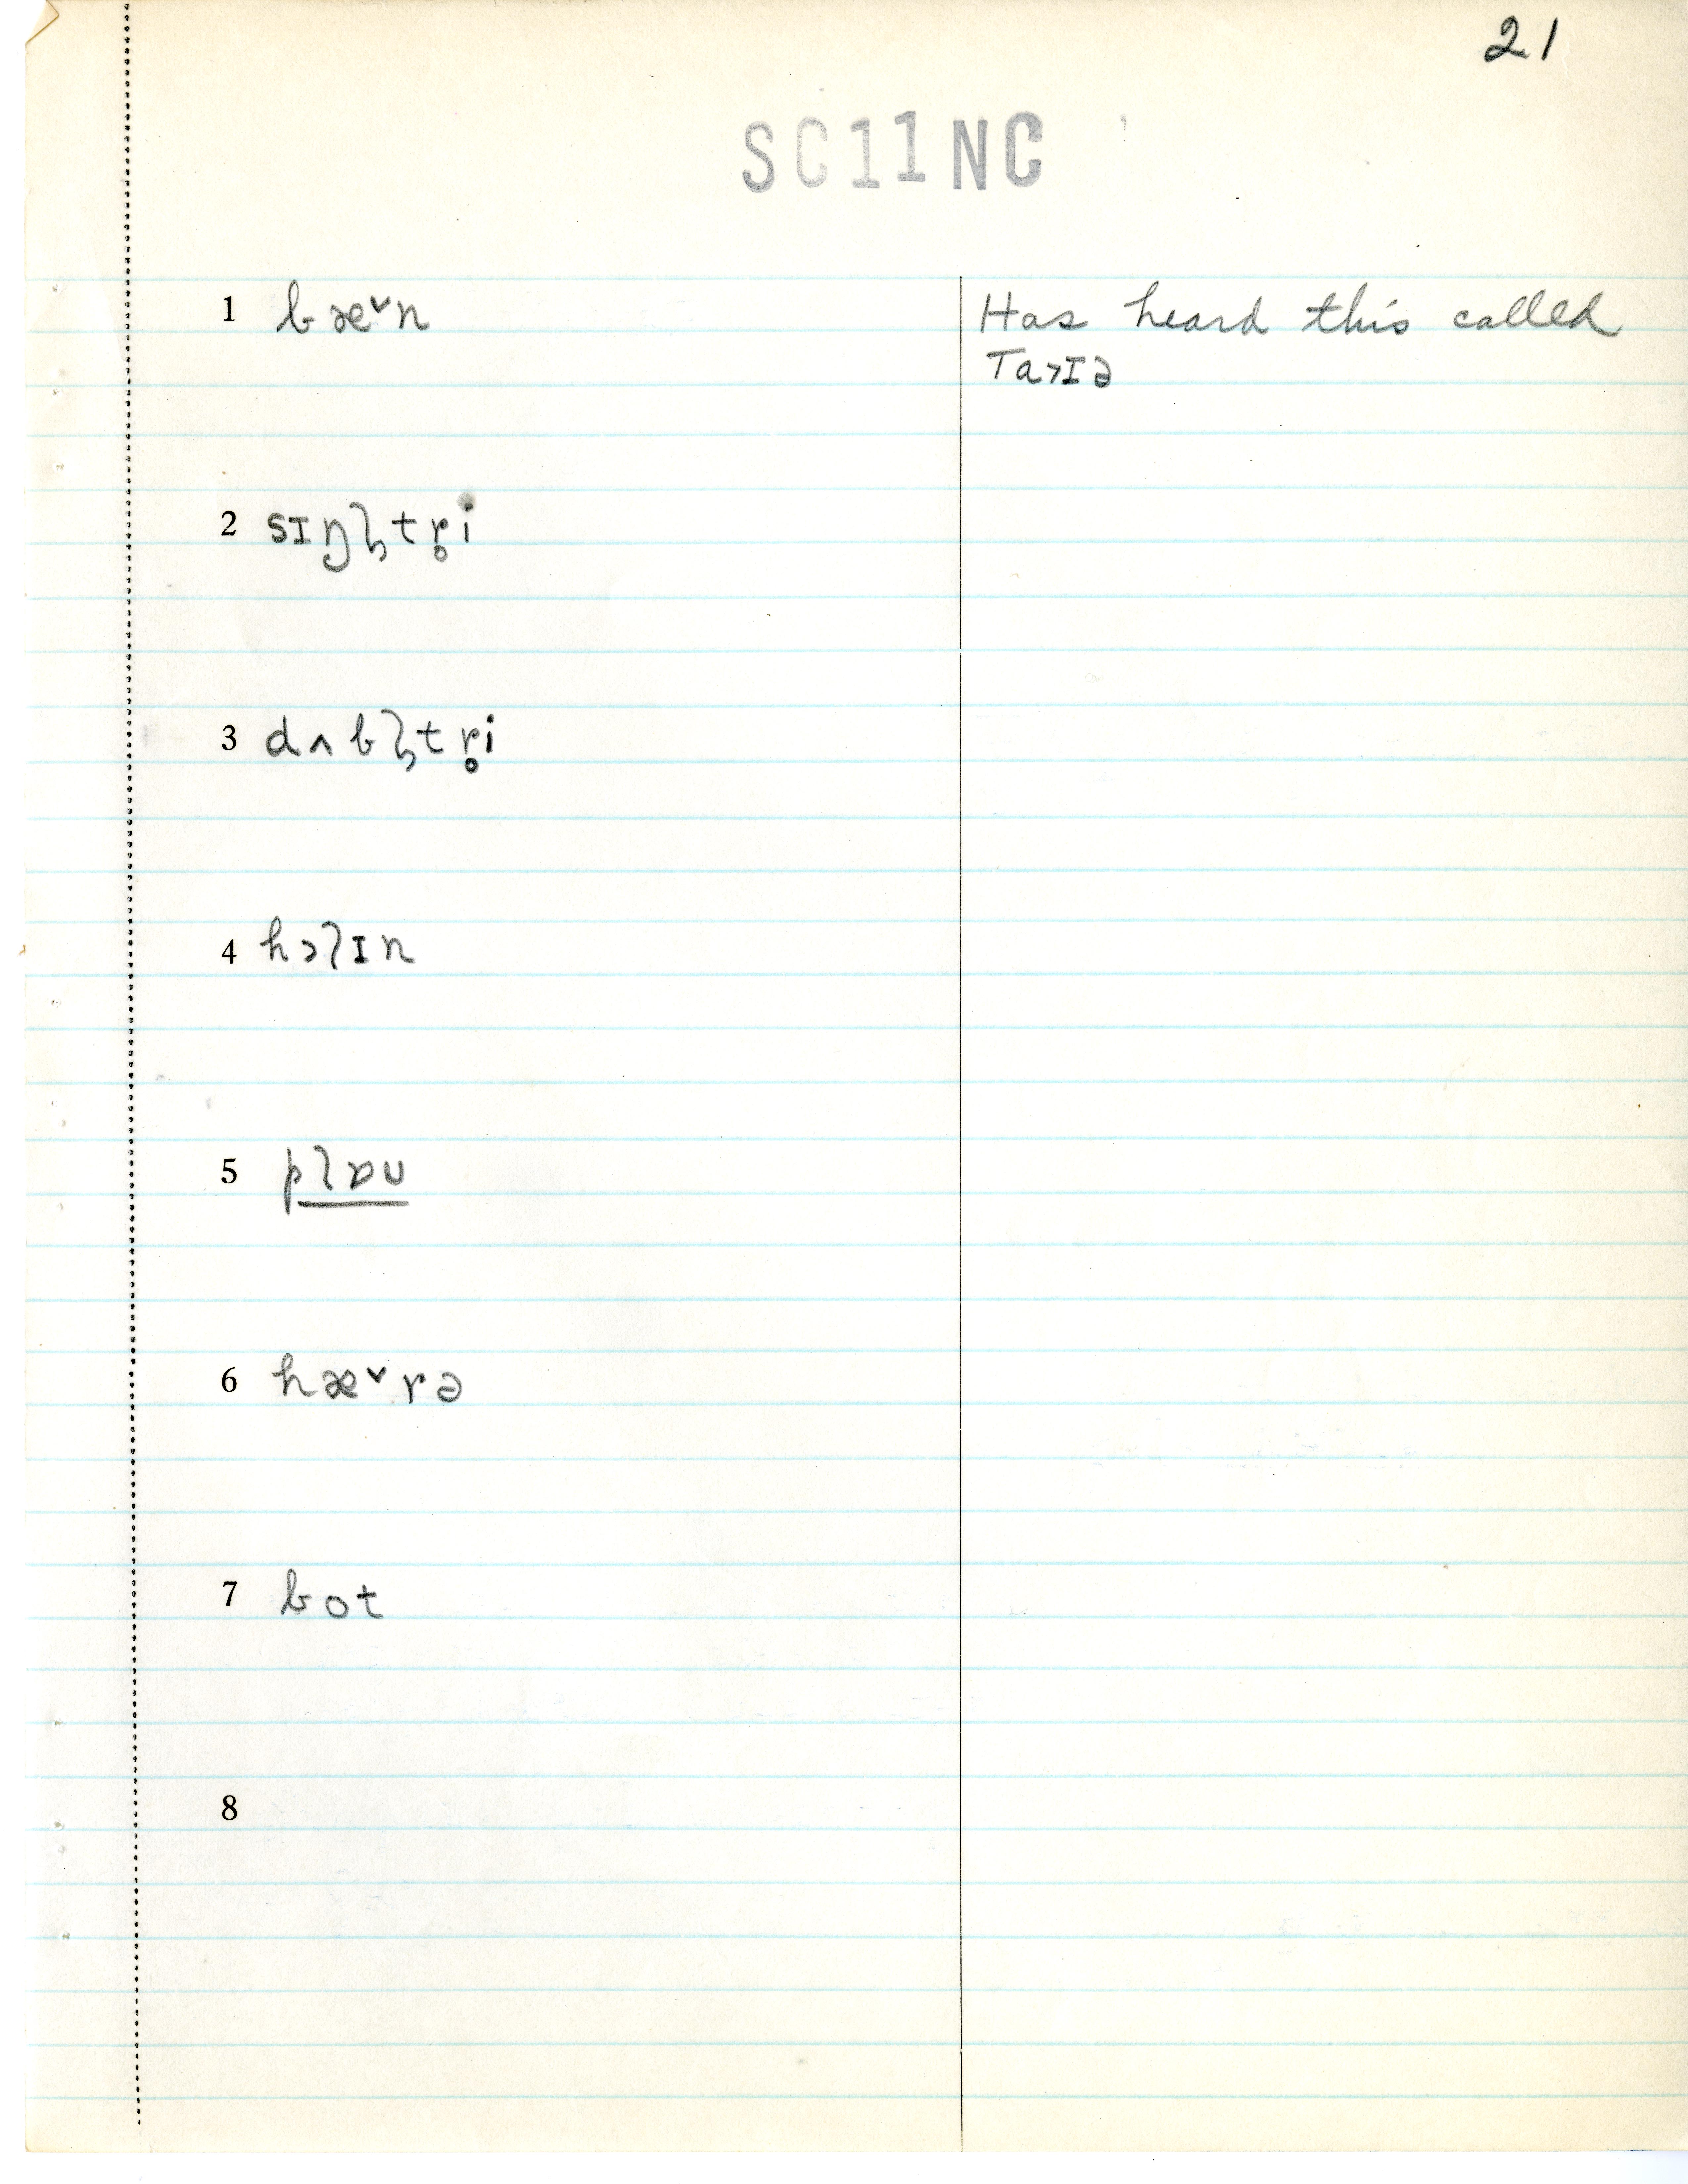 21
SC11NC
1 bæ˅n
Has heard this called
Ta˃ɪə
2 sɪŋl̩tr̥i
3 dʌbl̩tr̥i
4 hɔlɪn
5 plɒu
6 hæ˅rə
7 bot
8